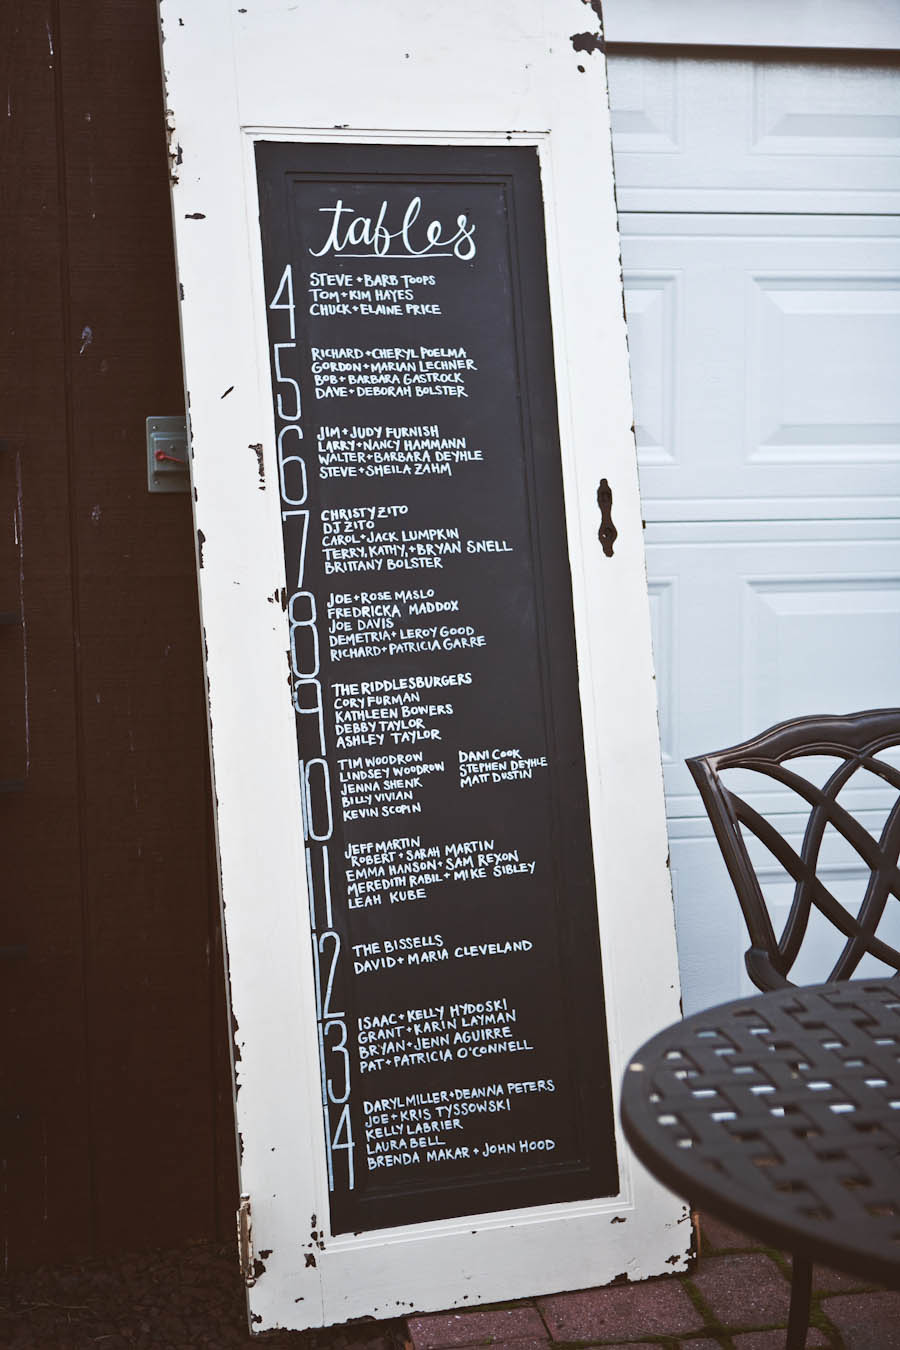 tables
4
STEVE + BARB TOOPS
TOM + KIM HAYES
CHUCK + ELAINE PRICE
5
RICHARD + CHERYL POELMA
GORDON + MARIAN LECHNER
BOB + BARBARA GASTROCK
DAVE + DEBORAH BOLSTER
6
JIM + JUDY FURNISH
LARRY + NANCY HAMMANN
WALTER + BARBARA DEYHLE
STEVE + SHEILA ZAHM
7
CHRISTY ZITO
DJ ZITO
CAROL + JACK LUMPKIN
TERRY, KATHY, + BRYAN SNELL
BRITTANY BOLSTER
8
JOE + ROSE MASLO
FREDRICKA MADDOX
JOE DAVIS
DEMETRIA + LEROY GOOD
RICHARD + PATRICIA GARRE
9
THE RIDDLESBURGERS
CORY FURMAN
KATHLEEN BOWERS
DEBBY TAYLOR
ASHLEY TAYLOR
10
TIM WOODROW
LINDSEY WOODROW
JENNA SHENK
BILLY VIVIAN
KEVIN SCOPIN
DANI COOK
STEPHEN DEYHLE
MATT DUSTIN
11
JEFF MARTIN
ROBERT + SARAH MARTIN
EMMA HANSON + SAM REXON
MEREDITH RABIL + MIKE SIBLEY
LEAH KUBE
12
THE BISSELLS
DAVID + MARIA CLEVELAND
13
ISAAC + KELLY HYDOSKI
GRANT + KARIN LAYMAN
BRYAN + JENN AGUIRRE
PAT + PATRICIA O'CONNELL
14
DARYL MILLER + DEANNA PETERS
JOE + KRIS TYSSOWSKI
KELLY LABRIER
LAURA BELL
BRENDA MAKAR + JOHN HOOD